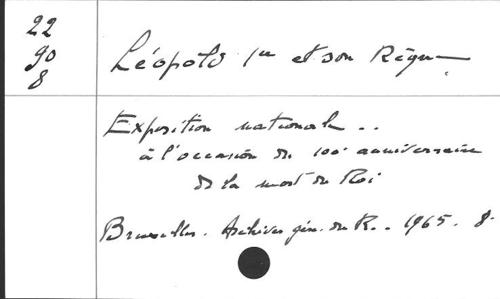 22
90
8
Léopold 1er et son Règne
Exposition nationale ..
à l'occasion du 100e anniversaire
de la mort du Roi
Bruxelles. Archives gén. du R.. 1965. 8.